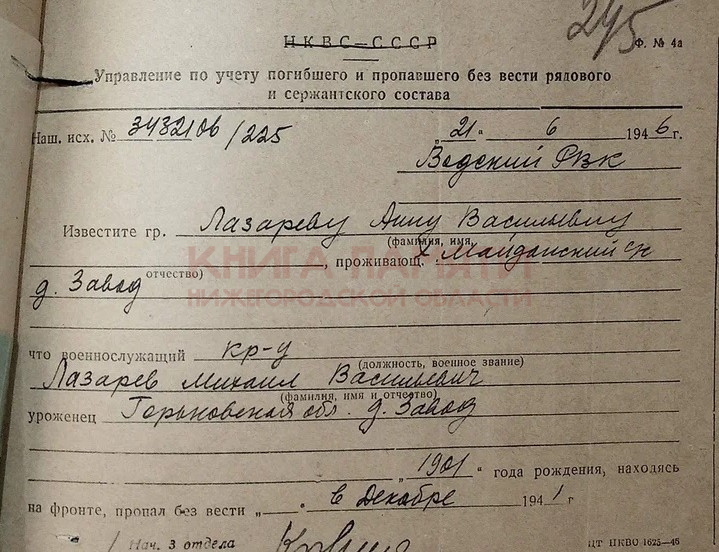 245
НКВС—СССР
Ф. № 4а
Управление по учету погибшего и пропавшего без вести рядового
и сержантского состава
Наш. исх. № 3432106/225 „21" 6 1946 г.
Водский РВК
Известите гр. Лазареву Анну Васильевну
(фамилия, имя,
отчество)
, проживающ. Майданский с/с
д. Завод
КНИГА ПАМЯТИ
НИЖЕГОРОДСКОЙ ОБЛАСТИ
что военнослужащий кр-ц
(должность, военное звание)
Лазарев Михаил Васильевич
(фамилия, имя и отчество)
уроженец Горьковская обл. д. Завод
„1901" года рождения, находясь
на фронте, пропал без вести „—" в декабре 1941 г
Нач. 3 отдела
ЦТ НКВО 1625—45